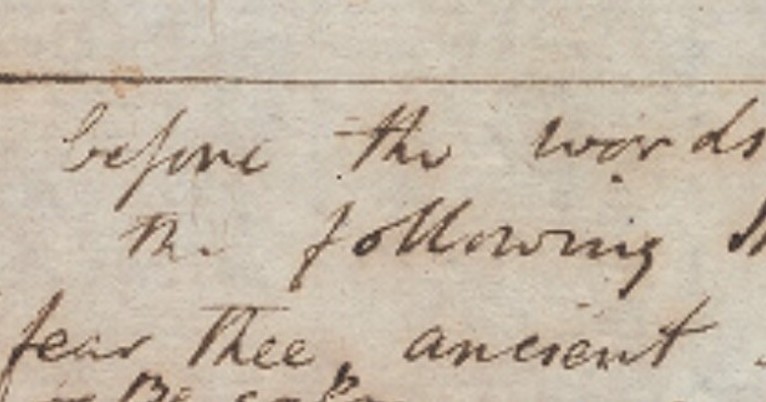 before the words
the following
fear thee, ancient